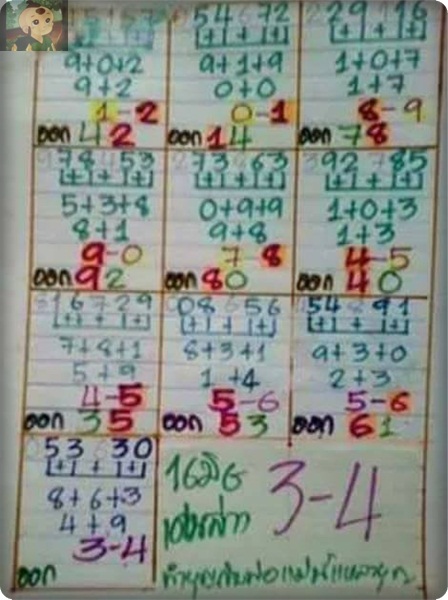 54 672
229 716
+ + +
+ + +
9+0+2
9+1+9
1+0+7
9+2
0+0
1+7
1-2
0-1
8-9
ออก 42
ออก 14
ออก 78
978453
273863
392785
+ + +
+ + +
+ + +
5+3+8
0+9+9
1+0+3
8+1
9+8
1+3
9-0
7-8
4-5
ออก 92
ออก 80
ออก 40
816729
08 656
454 891
+ + +
+ + +
+ + +
7+8+1
8+3+1
9+3+0
5+9
1+4
2+3
4-5
5-6
5-6
ออก 35
ออก 53
ออก 61
053 630
+ + +
8+6+3
4+9
3-4
ออก
16 มิย
3-4